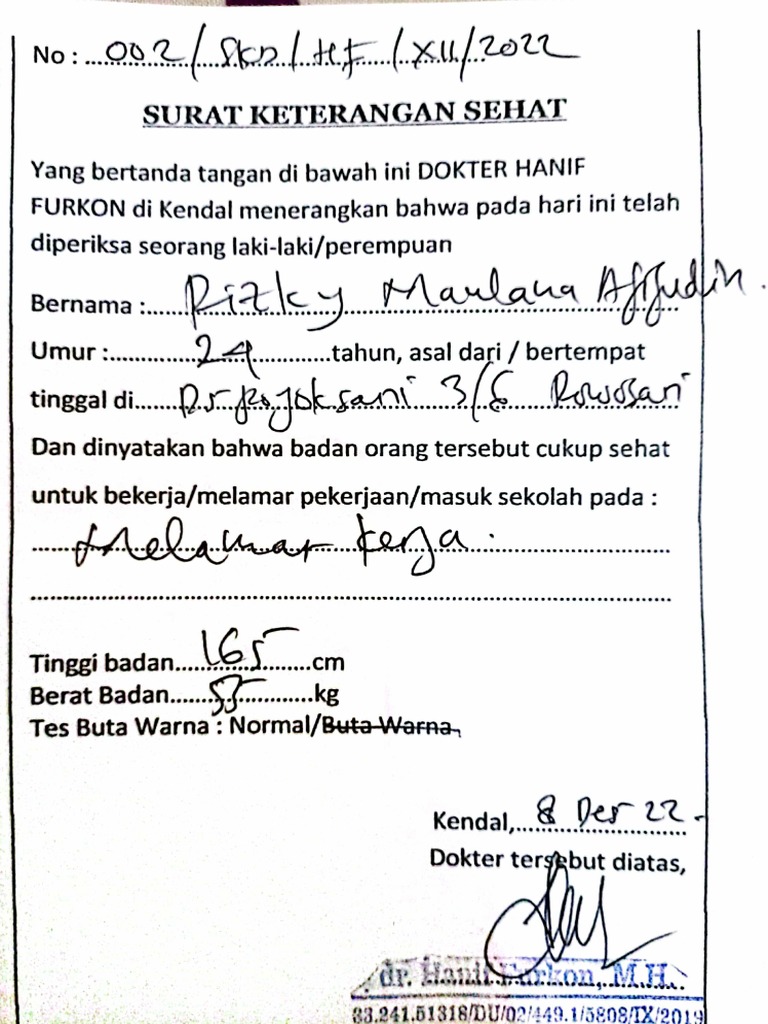 No : 002/SKD/HF/XII/2022
SURAT KETERANGAN SEHAT
Yang bertanda tangan di bawah ini DOKTER HANIF
FURKON di Kendal menerangkan bahwa pada hari ini telah
diperiksa seorang laki-laki/perempuan
Bernama : Rizky Maulana Afifudin.
Umur : 24 tahun, asal dari / bertempat
tinggal di Ds 3/6 Rowosari
Dan dinyatakan bahwa badan orang tersebut cukup sehat
untuk bekerja/melamar pekerjaan/masuk sekolah pada :
Melamar kerja.
Tinggi badan 165 cm
Berat Badan 55 kg
Tes Buta Warna : Normal/Buta Warna
Kendal, 8 Des 22 -
Dokter tersebut diatas,
dr. Hanif Furkon, M.H.
33.241.51318/DU/02/449.1/5808/IX/2019